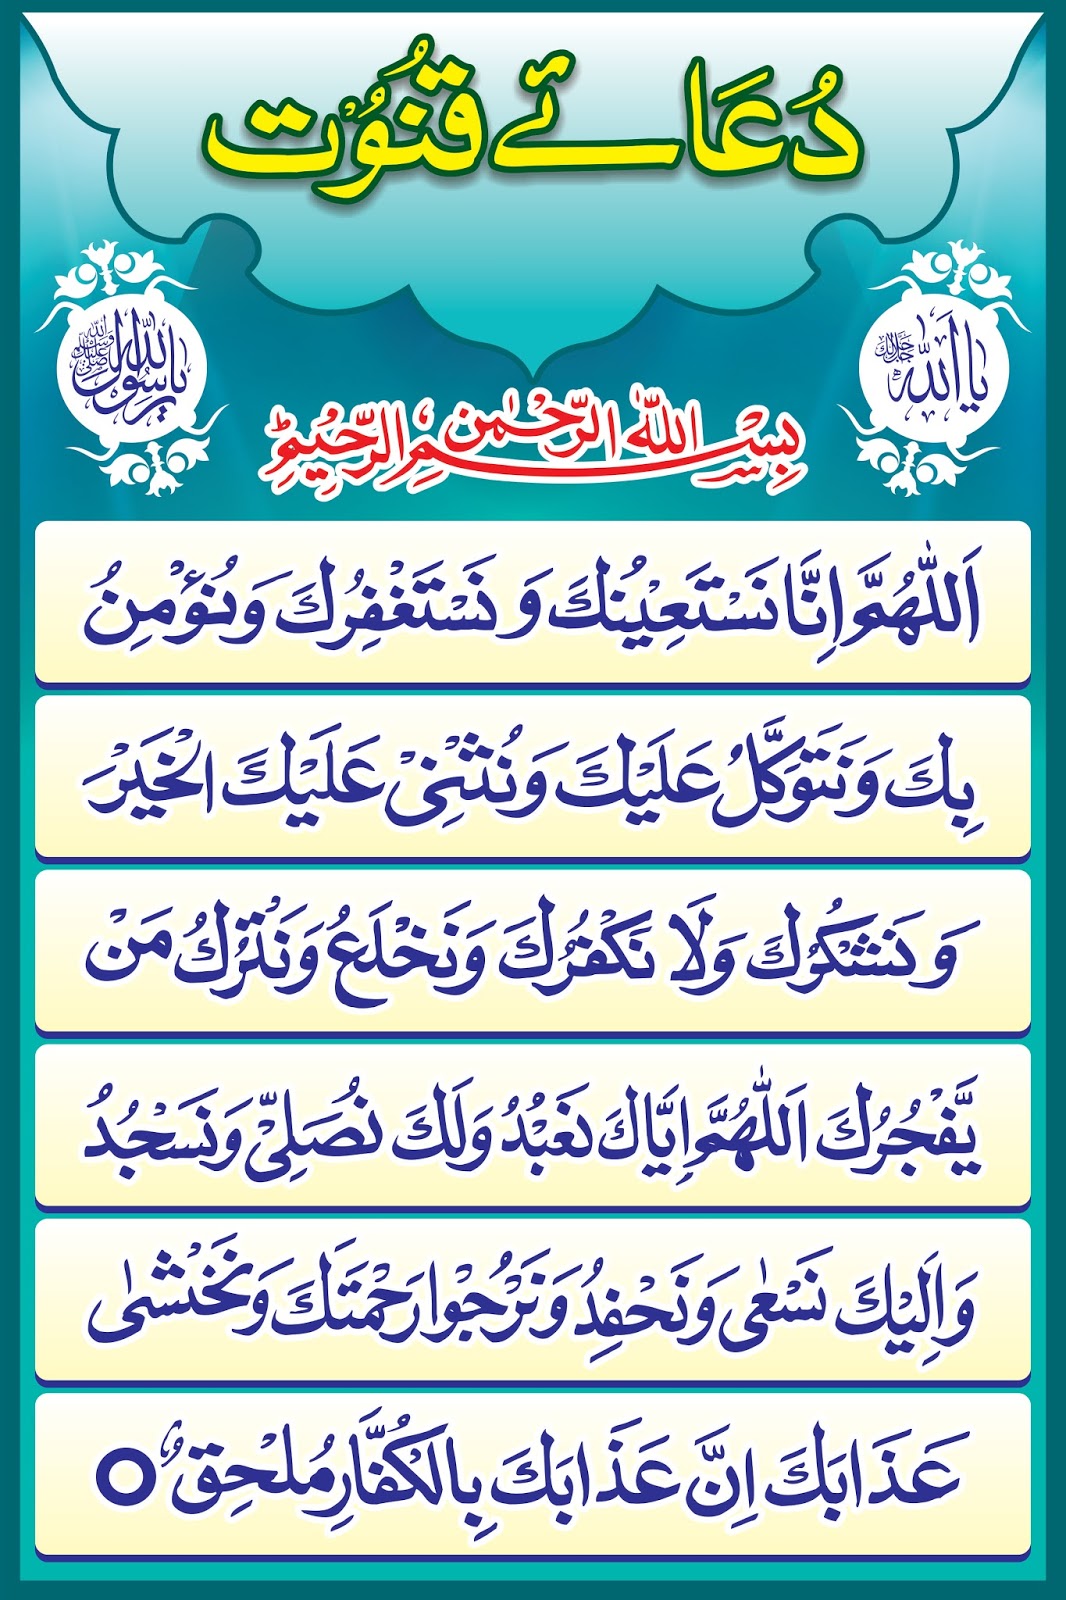 دُعَائے قُنُوْت
یا اَللہ جل جلالہ
یا رسول اللہ صلی اللہ علیہ وسلم
بِسْمِ اللہِ الرَّحْمٰنِ الرَّحِیْمِ
اَللّٰهُمَّ اِنَّا نَسْتَعِیْنُكَ وَ نَسْتَغْفِرُكَ وَنُؤْمِنُ
بِكَ وَنَتَوَكَّلُ عَلَیْكَ وَنُثْنِیْ عَلَیْكَ الْخَیْرَ
وَ نَشْكُرُكَ وَلَا نَكْفُرُكَ وَنَخْلَعُ وَنَتْرُكُ مَنْ
یَّفْجُرُكَ اَللّٰهُمَّ اِیَّاكَ نَعْبُدُ وَلَكَ نُصَلِّیْ وَنَسْجُدُ
وَاِلَیْكَ نَسْعٰی وَنَحْفِدُ وَنَرْجُوْا رَحْمَتَكَ وَنَخْشٰی
عَذَابَكَ اِنَّ عَذَابَكَ بِالْكُفَّارِ مُلْحِقٌ